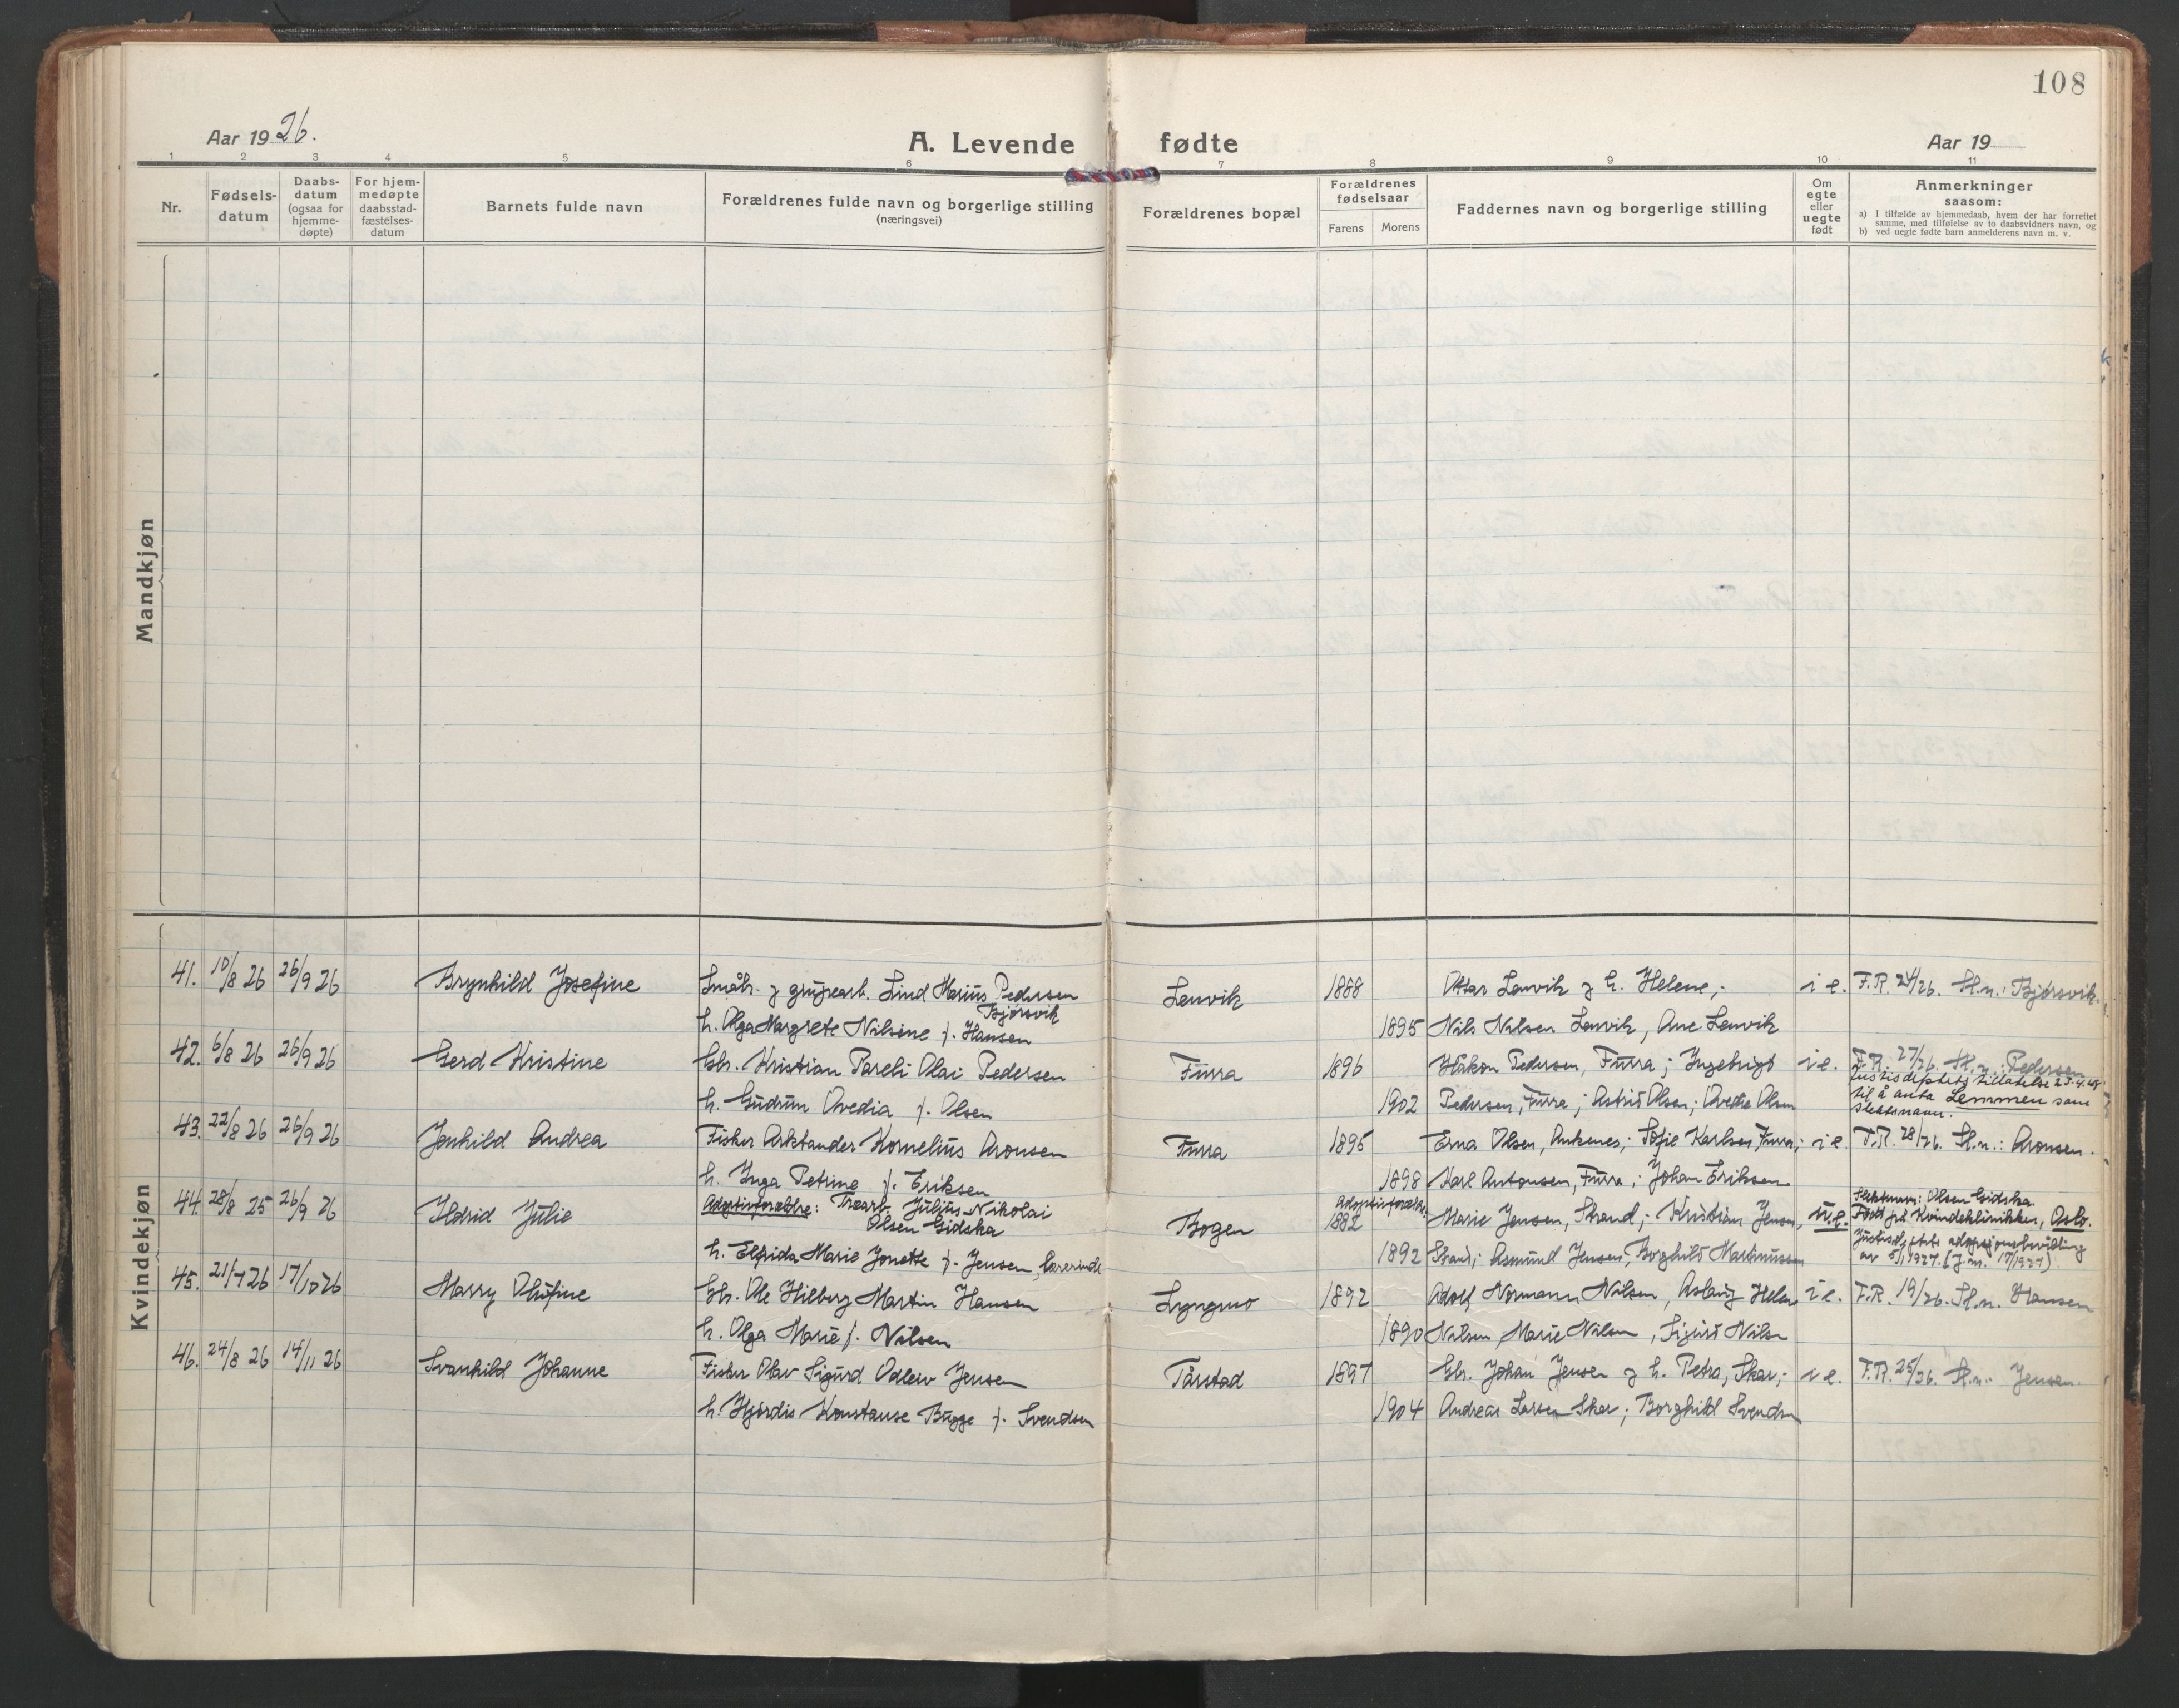 108
Aar 1926.
A. Levende fødte
Aar 19
1 2 3 4 5 6 7 8 9 10 11
Nr.
Fødsels-
datum
Daabs-
datum
(ogsaa for
hjemme-
døpte)
For hjem-
medøpte
daabsstad-
fæstelses-
datum
Barnets fulde navn
Forældrenes fulde navn og borgerlige stilling
(næringsvei)
Forældrenes bopæl
Forældrenes
fødselsaar
Farens Morens
Faddernes navn og borgerlige stilling
Om
egte
eller
uegte
født
Anmerkninger
saasom:
a) I tilfælde av hjemmedaab, hvem der har forrettet
samme, med tilføielse av to daabsvidners navn, og
b) ved uegte fødte barn anmelderens navn m. v.
Mandkjøn
Kvindekjøn
41. 10/8 26 26/9 26 Brynhild Josefine Småbr. g grubearb. Lind Marius Pedersen Lenvik 1888 Ottar Lenvik g h. Helene; i e. F.R. 24/26. Sl.n.: Bjørsvik.
Bjørsvik
h. Olga Margrete Nilsine f. Hansen 1895 Nils Nilsen Lenvik, Ane Lenvik
42. 6/8 26 26/9 26 Gerd Kristine Gbr. Kristian Pareli Olai Pedersen Furra 1896 Håkon Pedersen, Furra; Ingebrigt i e. F.R. 27/26. Sl.n.: Pedersen
Justisdeptets tillatelse 23-4-48
h. Gudrun Ovedia f. Olsen 1902 Pedersen, Furra; Astrid Olsen; Ovedia Olsen til å anta Lemmen som
slektsnavn.
43. 22/8 26 26/9 26 Jenhild Andrea Fisker Arktander Kornelius Aronsen Furra 1895 Erna Olsen, Ankenes; Sofie Karlsen Furra; i e. F.R. 28/26. Sl.n.: Aronsen.
h. Inga Petrine f. Eriksen 1898 Karl Antonsen, Furra; Johan Eriksen
44. 28/8 25 26/9 26 Ildrid Julie Adoptivforældre: Træarb. Julius Nikolai Bogen Adoptivforældr. 1882 Marie Jensen, Strand; Kristian Jensen, u.e. Slektsnavn: Olsen Gidska
Olsen Gidska Født på Kvindeklinikken, Oslo.
h. Elfrida Marie Jonette f. Jensen, lærerinde 1892 Strand; Asmund Jensen, Borghild Martinussen Justisdeptets adopsjonsbevilling
av 5/1 1927. (J.nr. 17/1927)
45. 21/7 26 17/10 26 Marry Olufine Gbr. Ole Hilberg Martin Hansen Lyngmo 1892 Adolf Normann Nilsen, Aslaug Helen i e. F.R. 19/26. Sl.n. Hansen
h. Olga Marie f. Nilsen 1890 Nilsen, Marie Nilsen, Sigurd Nilsen
46. 24/8 26 14/11 26 Svanhild Johanne Fisker Olav Sigurd Odleiv Jensen Tårstad 1897 Gbr. Johan Jensen g h. Petra, Skar; i e. F.R. 25/26. Sl.n.: Jensen.
h. Hjørdis Konstanse Bugge f. Svendsen 1904 Andreas Larsen Skar; Borghild Svendsen